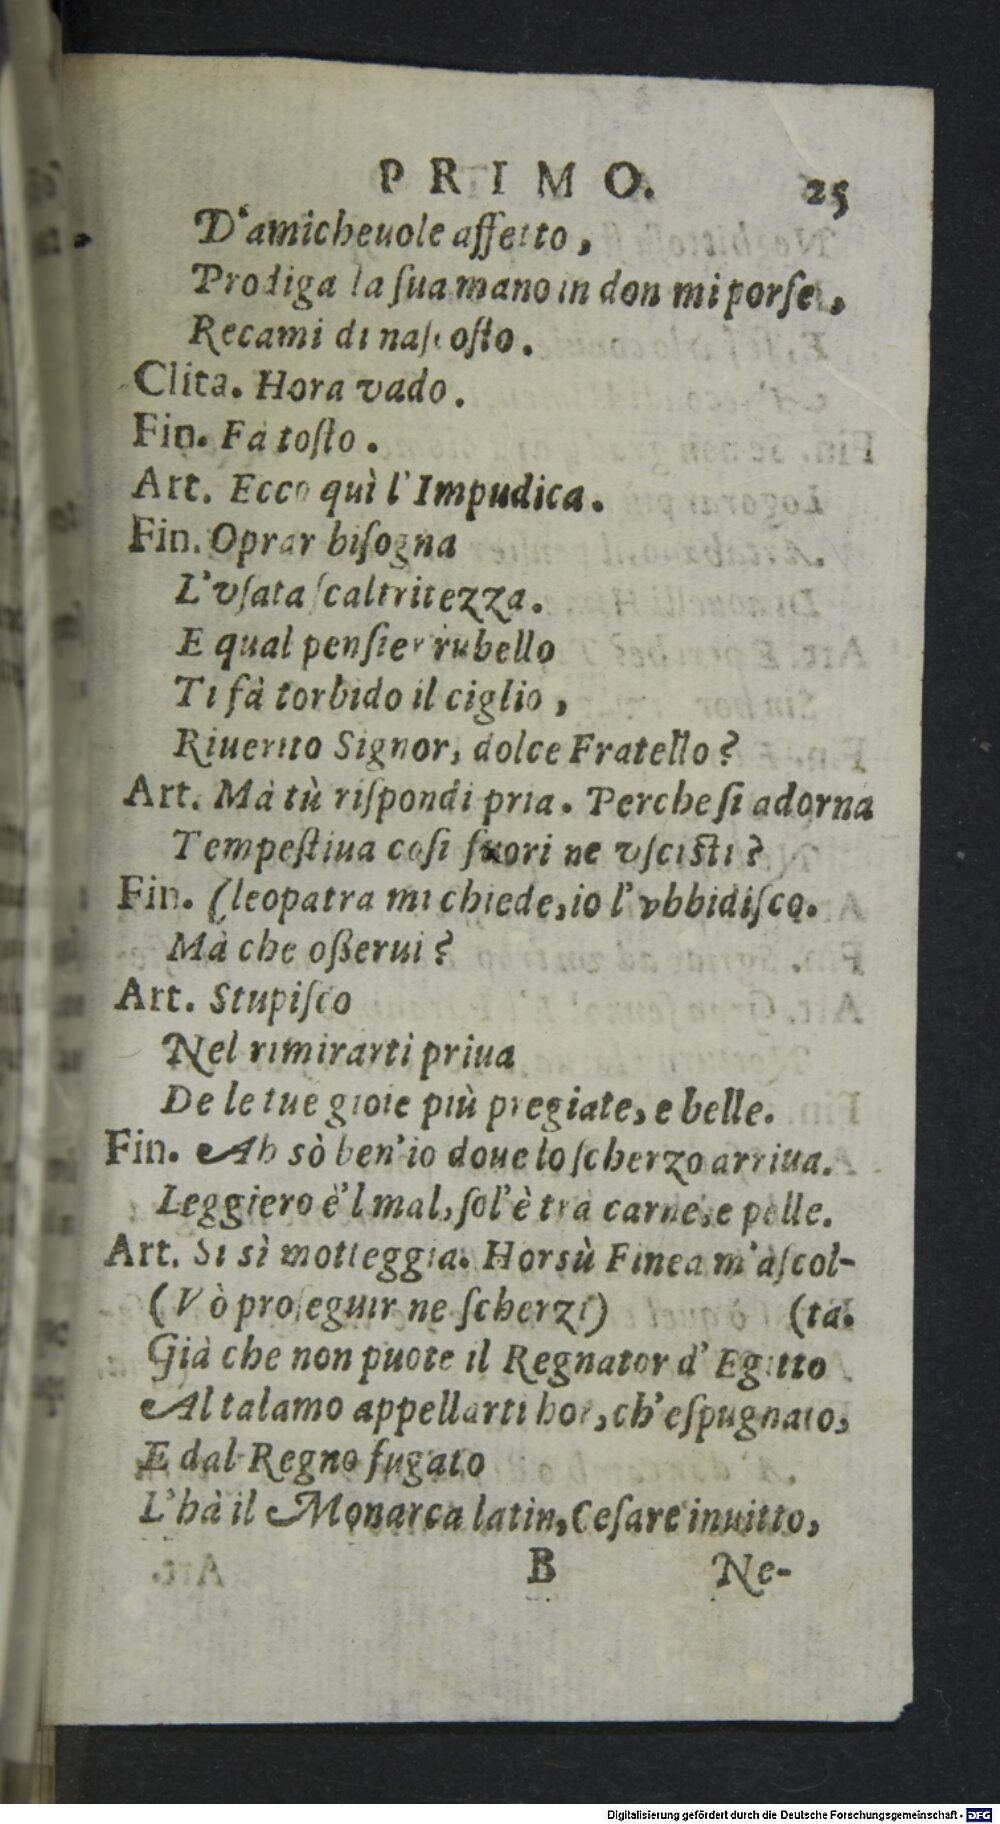 PRIMO. 25
D'amicheuole affetto,
Prodiga la ſua mano in don mi porſe,
Recami di naſcoſto.
Clita. Hora vado.
Fin. Fà toſto.
Art. Ecco quì l'Impudica.
Fin. Oprar biſogna
L'vſata ſcaltritezza.
E qual penſier rubello
Ti fà torbido il ciglio,
Riuerito Signor, dolce Fratello?
Art. Mà tù riſpondi pria. Perche ſi adorna
Tempeſtiua coſi fuori ne vſciſti?
Fin. Cleopatra mi chiede, io l'vbbidiſco.
Mà che oßerui?
Art. Stupiſco
Nel rimirarti priua
De le tue gioie più pregiate, e belle.
Fin. Ah sò ben'io doue lo ſcherzo arriua.
Leggiero è'l mal, ſol'è trà carne, e pelle.
Art. Si sì motteggia. Horsù Finea m'aſcol-
(Vò proſeguir ne ſcherzi) (ta.
Già che non puote il Regnator d'Egitto
Al talamo appellarti hor, ch'eſpugnato,
E dal Regno fugato
L'hà il Monarca latin, Ceſare inuitto,
B Ne-
Digitalisierung gefördert durch die Deutsche Forschungsgemeinschaft - DFG